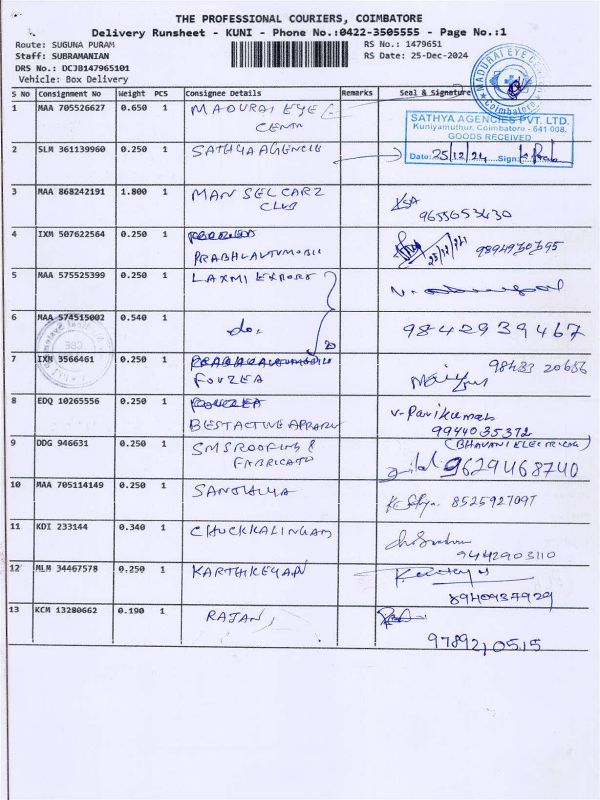 THE PROFESSIONAL COURIERS, COIMBATORE
Delivery Runsheet - KUNI - Phone No.:0422-3505555 - Page No.:1
Route: SUGUNA PURAM
RS No.: 1479651
Staff: SUBRAMANIAN
RS Date: 25-Dec-2024
DRS No.: DCJB147965101
Vehicle: Box Delivery
MADURAI EYE
Coimbatore
S No Consignment No Weight PCS Consignee Details Remarks Seal & Signature
1 MAA 705526627 0.650 1 MADURAI EYE
CENTR
SATHYA AGENCIES PVT. LTD.
Kuniyamuthur, Coimbatore - 641 008.
GOODS RECEIVED
Date: 25/12/24 Sign:
2 SLM 361139960 0.250 1 SATHYA AGENCIE
3 MAA 868242191 1.800 1 MAN SELCARZ
CLUB
9655653430
4 IXM 507622564 0.250 1
PRABHU AUTOMOBIL
25/12/24
5 MAA 575525399 0.250 1 LAXMI EXPORT
6 MAA 574515002 0.540 1 do.
9842939467
7 IXM 3566461 0.250 1
FOUZEA
98483 20686
8 EDQ 10265556 0.250 1
BESTACTIVE APPARU
V-Parikumar
9944035372
(BHAVANI ELECTRICAL)
9 DDG 946631 0.250 1 SMS ROOFING &
FABRICATO
9629468740
10 MAA 705114149 0.250 1 SANDHIYA
8525927097
11 KDI 233144 0.340 1 CHUCKKALINGAM
9442903110
12 MLM 34467578 0.250 1 KARTHIKEYAN
8940937929
13 KCM 13280662 0.190 1 RAJAN,
9789210515